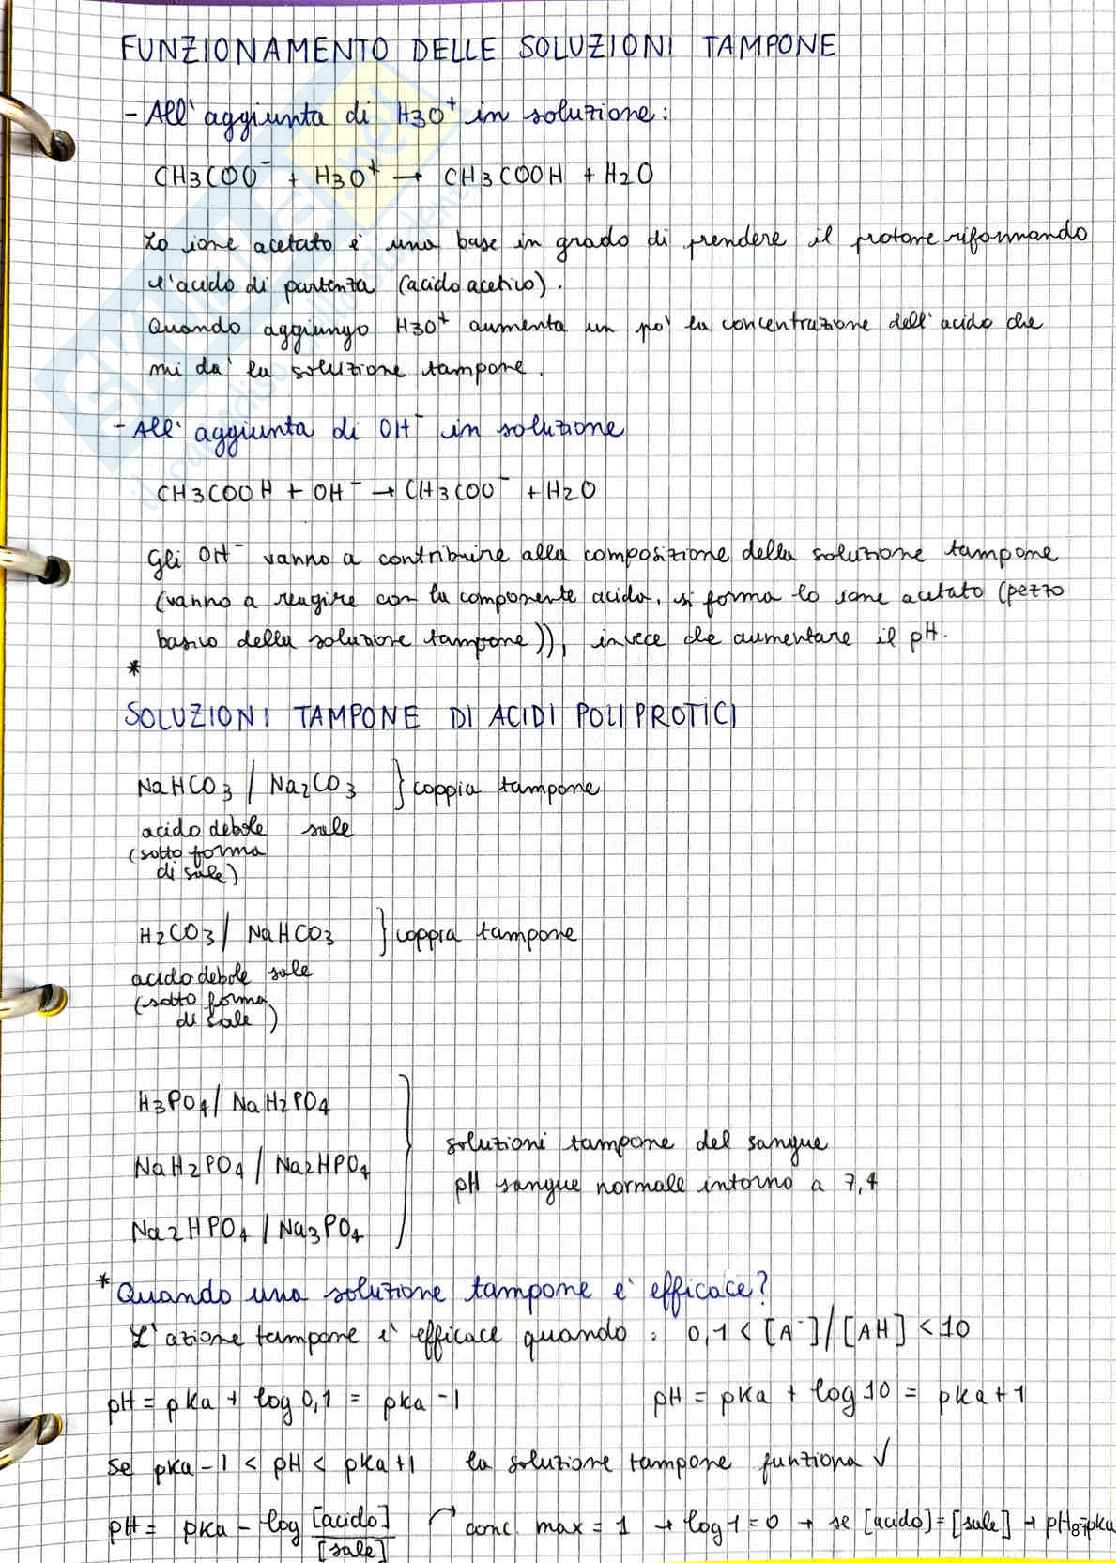 FUNZIONAMENTO DELLE SOLUZIONI TAMPONE
- All'aggiunta di H3O⁺ in soluzione:
CH3COO⁻ + H3O⁺ → CH3COOH + H2O
Lo ione acetato è una base in grado di prendere il protone riformando
l'acido di partenza (acido acetico).
Quando aggiungo H3O⁺ aumenta un po' la concentrazione dell'acido che
mi da' la soluzione tampone.
- All'aggiunta di OH⁻ in soluzione
CH3COOH + OH⁻ → CH3COO⁻ + H2O
Gli OH⁻ vanno a contribuire alla composizione della soluzione tampone
(vanno a reagire con la componente acida, si forma lo ione acetato (pezzo
basico della soluzione tampone)), invece che aumentare il pH.
*
SOLUZIONI TAMPONE DI ACIDI POLIPROTICI
NaHCO₃ / Na₂CO₃ } coppia tampone
acido debole sale
(sotto forma
di sale)
H₂CO₃ / NaHCO₃ } coppia tampone
acido debole sale
(sotto forma
di sale)
H₃PO₄ / NaH₂PO₄
soluzioni tampone del sangue
NaH₂PO₄ / Na₂HPO₄
pH sangue normale intorno a 7,4
Na₂HPO₄ / Na₃PO₄
* Quando una soluzione tampone è efficace?
L'azione tampone è efficace quando: 0,1 < [A⁻] / [AH] < 10
pH = pKa + log 0,1 = pKa - 1 pH = pKa + log 10 = pKa + 1
se pKa - 1 < pH < pKa + 1 la soluzione tampone funziona ✓
pH = pKa - log [acido]/[sale] conc. max = 1 → log 1 = 0 → se [acido] = [sale] → pH = pKa
87